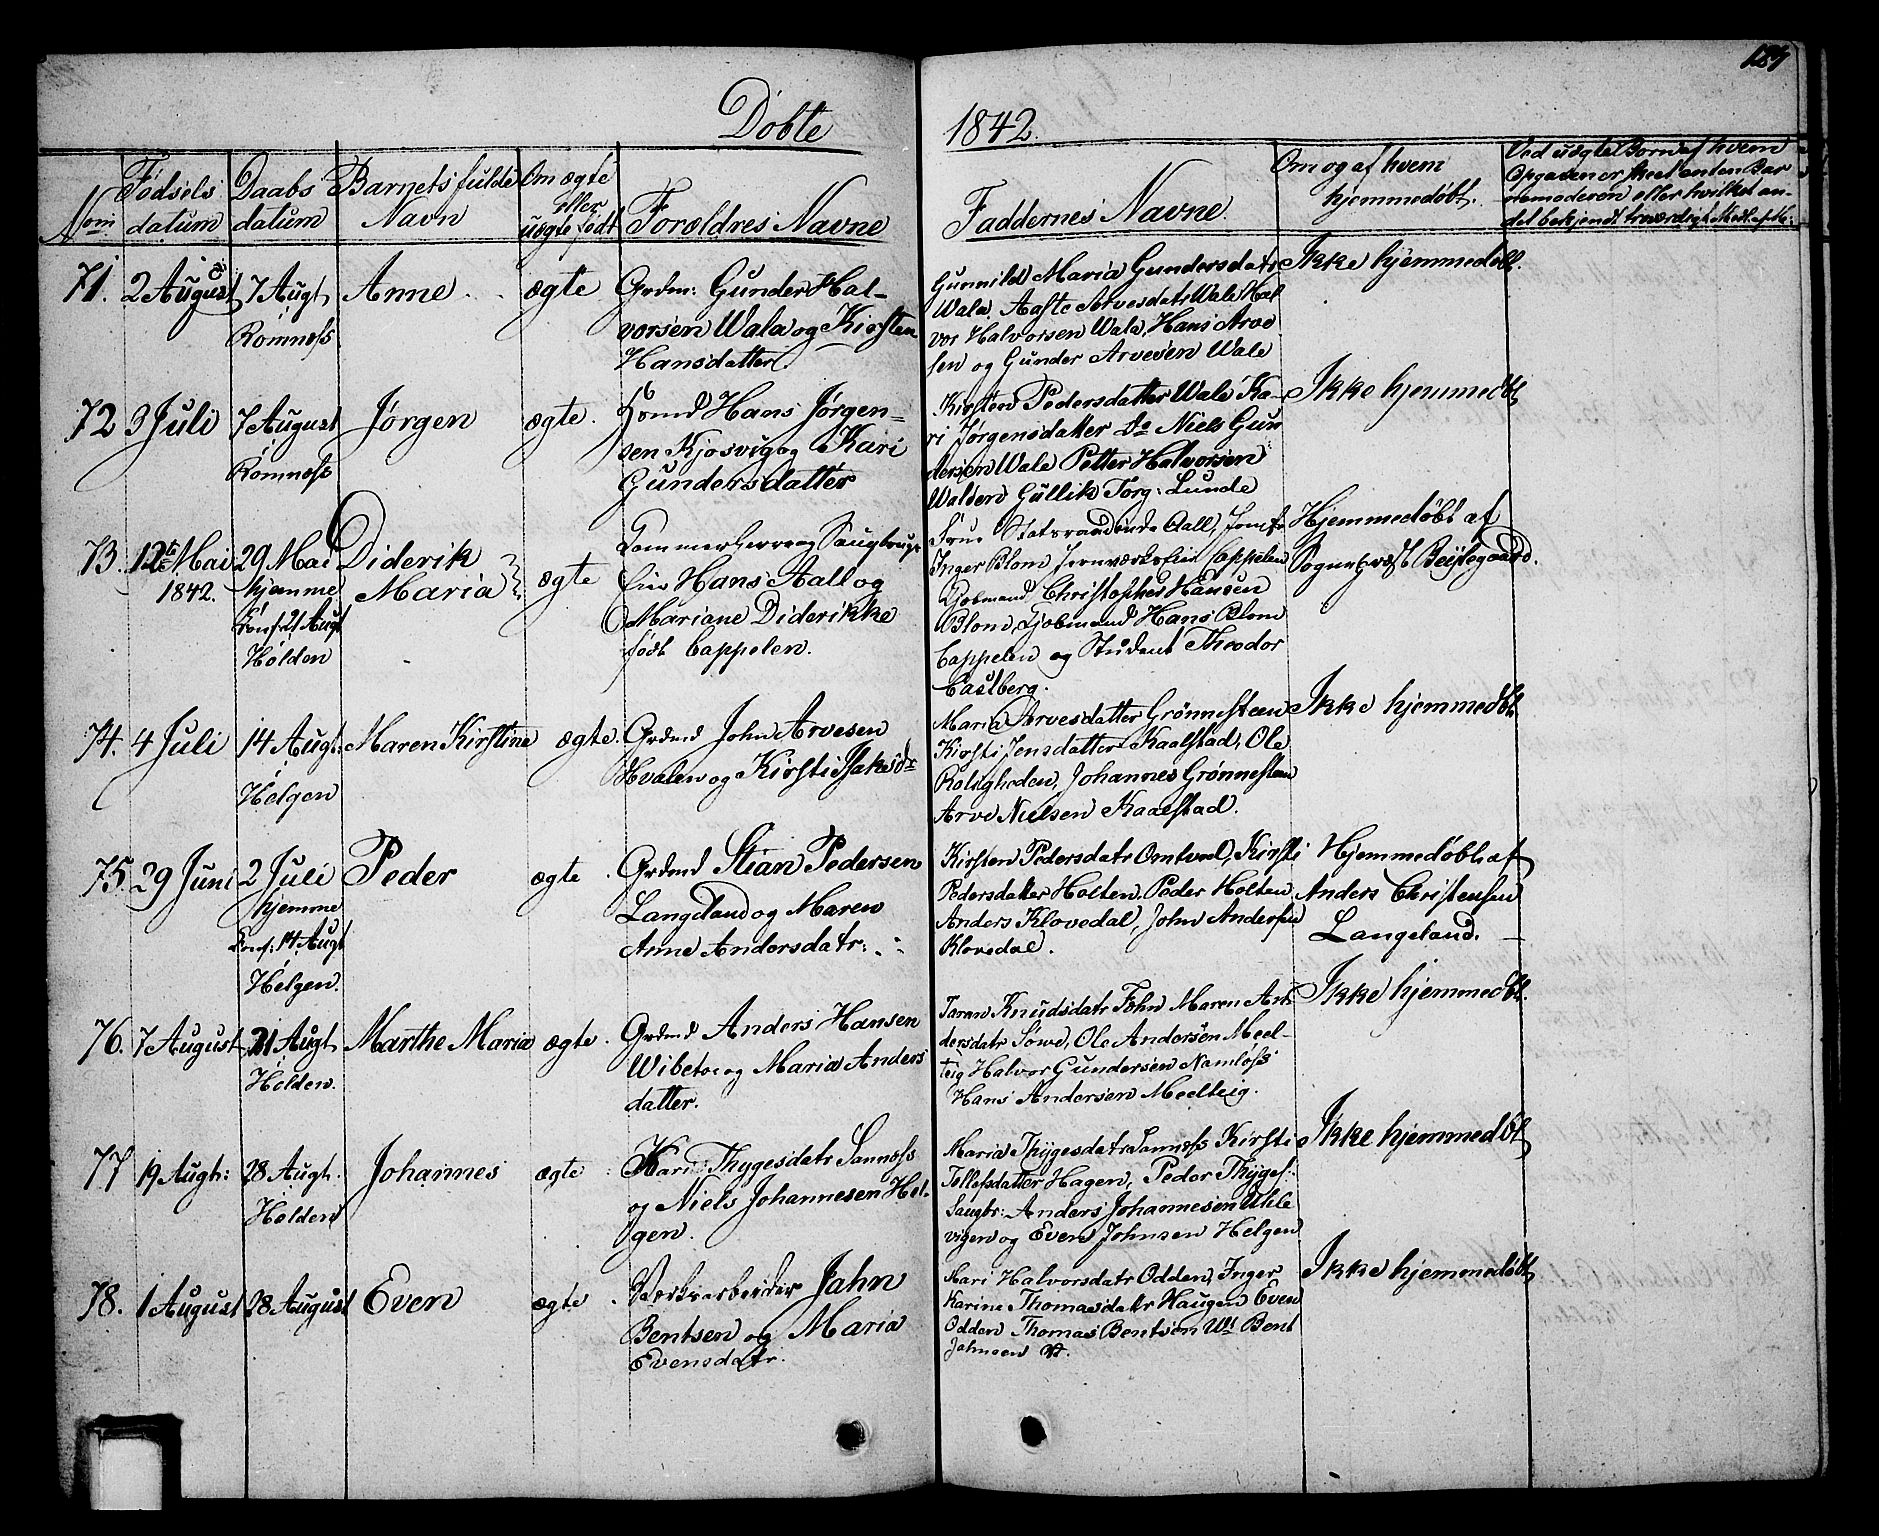 Døbte
1842.
Nom
Fødsels
datum
Daabs
datum
Barnets fulde
Navn
Om ægte
eller
uægte født
Forældres Navne
Faddernes Navne.
Om og af hvem
hjemmedøbt.
Ved uægte Børn af hvem
Opgaven er skeet enten Bar
nemoderen eller hvilket an-
det bekjendt troværdigt
71.
2 August
7 Augt
Romnæss
Anne
ægte
Grdm: Gunder Hal-
vorsen Wala og Kirsten
Hansdatter
Gunnild Maria Gundersdatr
Wala, Aaste Arvesdatr Wala Hal
vor Halvorsen Wala, Hans Arve
sen og Gunder Arvesen Wale
Ikke hjemmedøbt.
72
3 Juli
7 August
Romnæss
Jørgen
ægte.
Hans Jørgen-
sen Kjosvig og Kari
Gundersdatter
Kirsten Pedersdatter Wale Ka-
ri Jørgensdatter do Niels Gun
dersen Wale Petter Halvorsen
Walden Gullik Torg: Lunde
Ikke hjemmedøbt
73.
12te Mai
1842.
29 Mai
hjemme
Conf: 21 Augt
Holden
Diderik
Maria
ægte
Kammerherre og Saugbrugs
Eier Hans Aall og
Mariane Diderikke
født Cappelen.
Frue Statsraadinde Aall, Jomfr
Inger Blom Jernværks Eier Cappelen
Kjøbmand Christopher Hansen
Blom, Kjøbmand Hans Blom
Cappelen og Student Theodor
Castberg.
Hjemmedøbt af
Sognepræst
74.
4 Juli
14 Augt.
Helgen
Maren Kirstine
ægte.
Grdmd John Arvesen
Hvalen og Kirsti Isaksdr
Maria Arvesdatter Grønnesteen
Kirsti Jensdatter Kaalstad, Ole
Roligheden, Johannes Grønnesteen
Arve Nielsen Kaalstad.
Ikke hjemmedøbt.
75.
29 Juni
2 Juli
hjemme
Conf: 14 Augt
Helgen.
Peder
ægte
Grdmd Stian Pedersen
Langeland og Maren
Anne Andersdatr:
Kirsten Pedersdatr Omtved, Kirsti
Pedersdatter Holten, Peder Holten,
Anders Klovedal, John Andersen
Klovedal.
Hjemmedøbt af
Anders Christensen
Langeland.
76.
7 August
21 Augt
Holden.
Marthe Maria
ægte.
Grdmd Anders Hansen
Wibeto og Maria Anders
datter.
Taran Knudsdatr Fohn Maren An
dersdatr Søve, Ole Andersen Meel-
teig Halvor Gundersen Namløss
Hans Andersen Meelteig.
Ikke hjemmedøbt.
77
19 Augt:
28 Augt.
Holden
Johannes
ægte
Kari Thygesdatr Sannæss
og Niels Johannesen Hel-
gen.
Maria Thygesdatr Sannæss Kirsti
Tollefsdatter Hagen, Peder Thyges:
Saugtr: Anders Johannesen Uhle
vigen og Even Johnsen Helgen
Ikke hjemmedøbt
78.
1 August
28 August
Even
ægte
Værksarbeider Jahn
Bentsen og Maria
Evensdatr.
Mari Halvorsdatr Odden, Inger
Karine Thomasdatr Haugen Even
Odden Thomas Bentsen Ul Bent
Jahnsen
Ikke hjemmedøbt